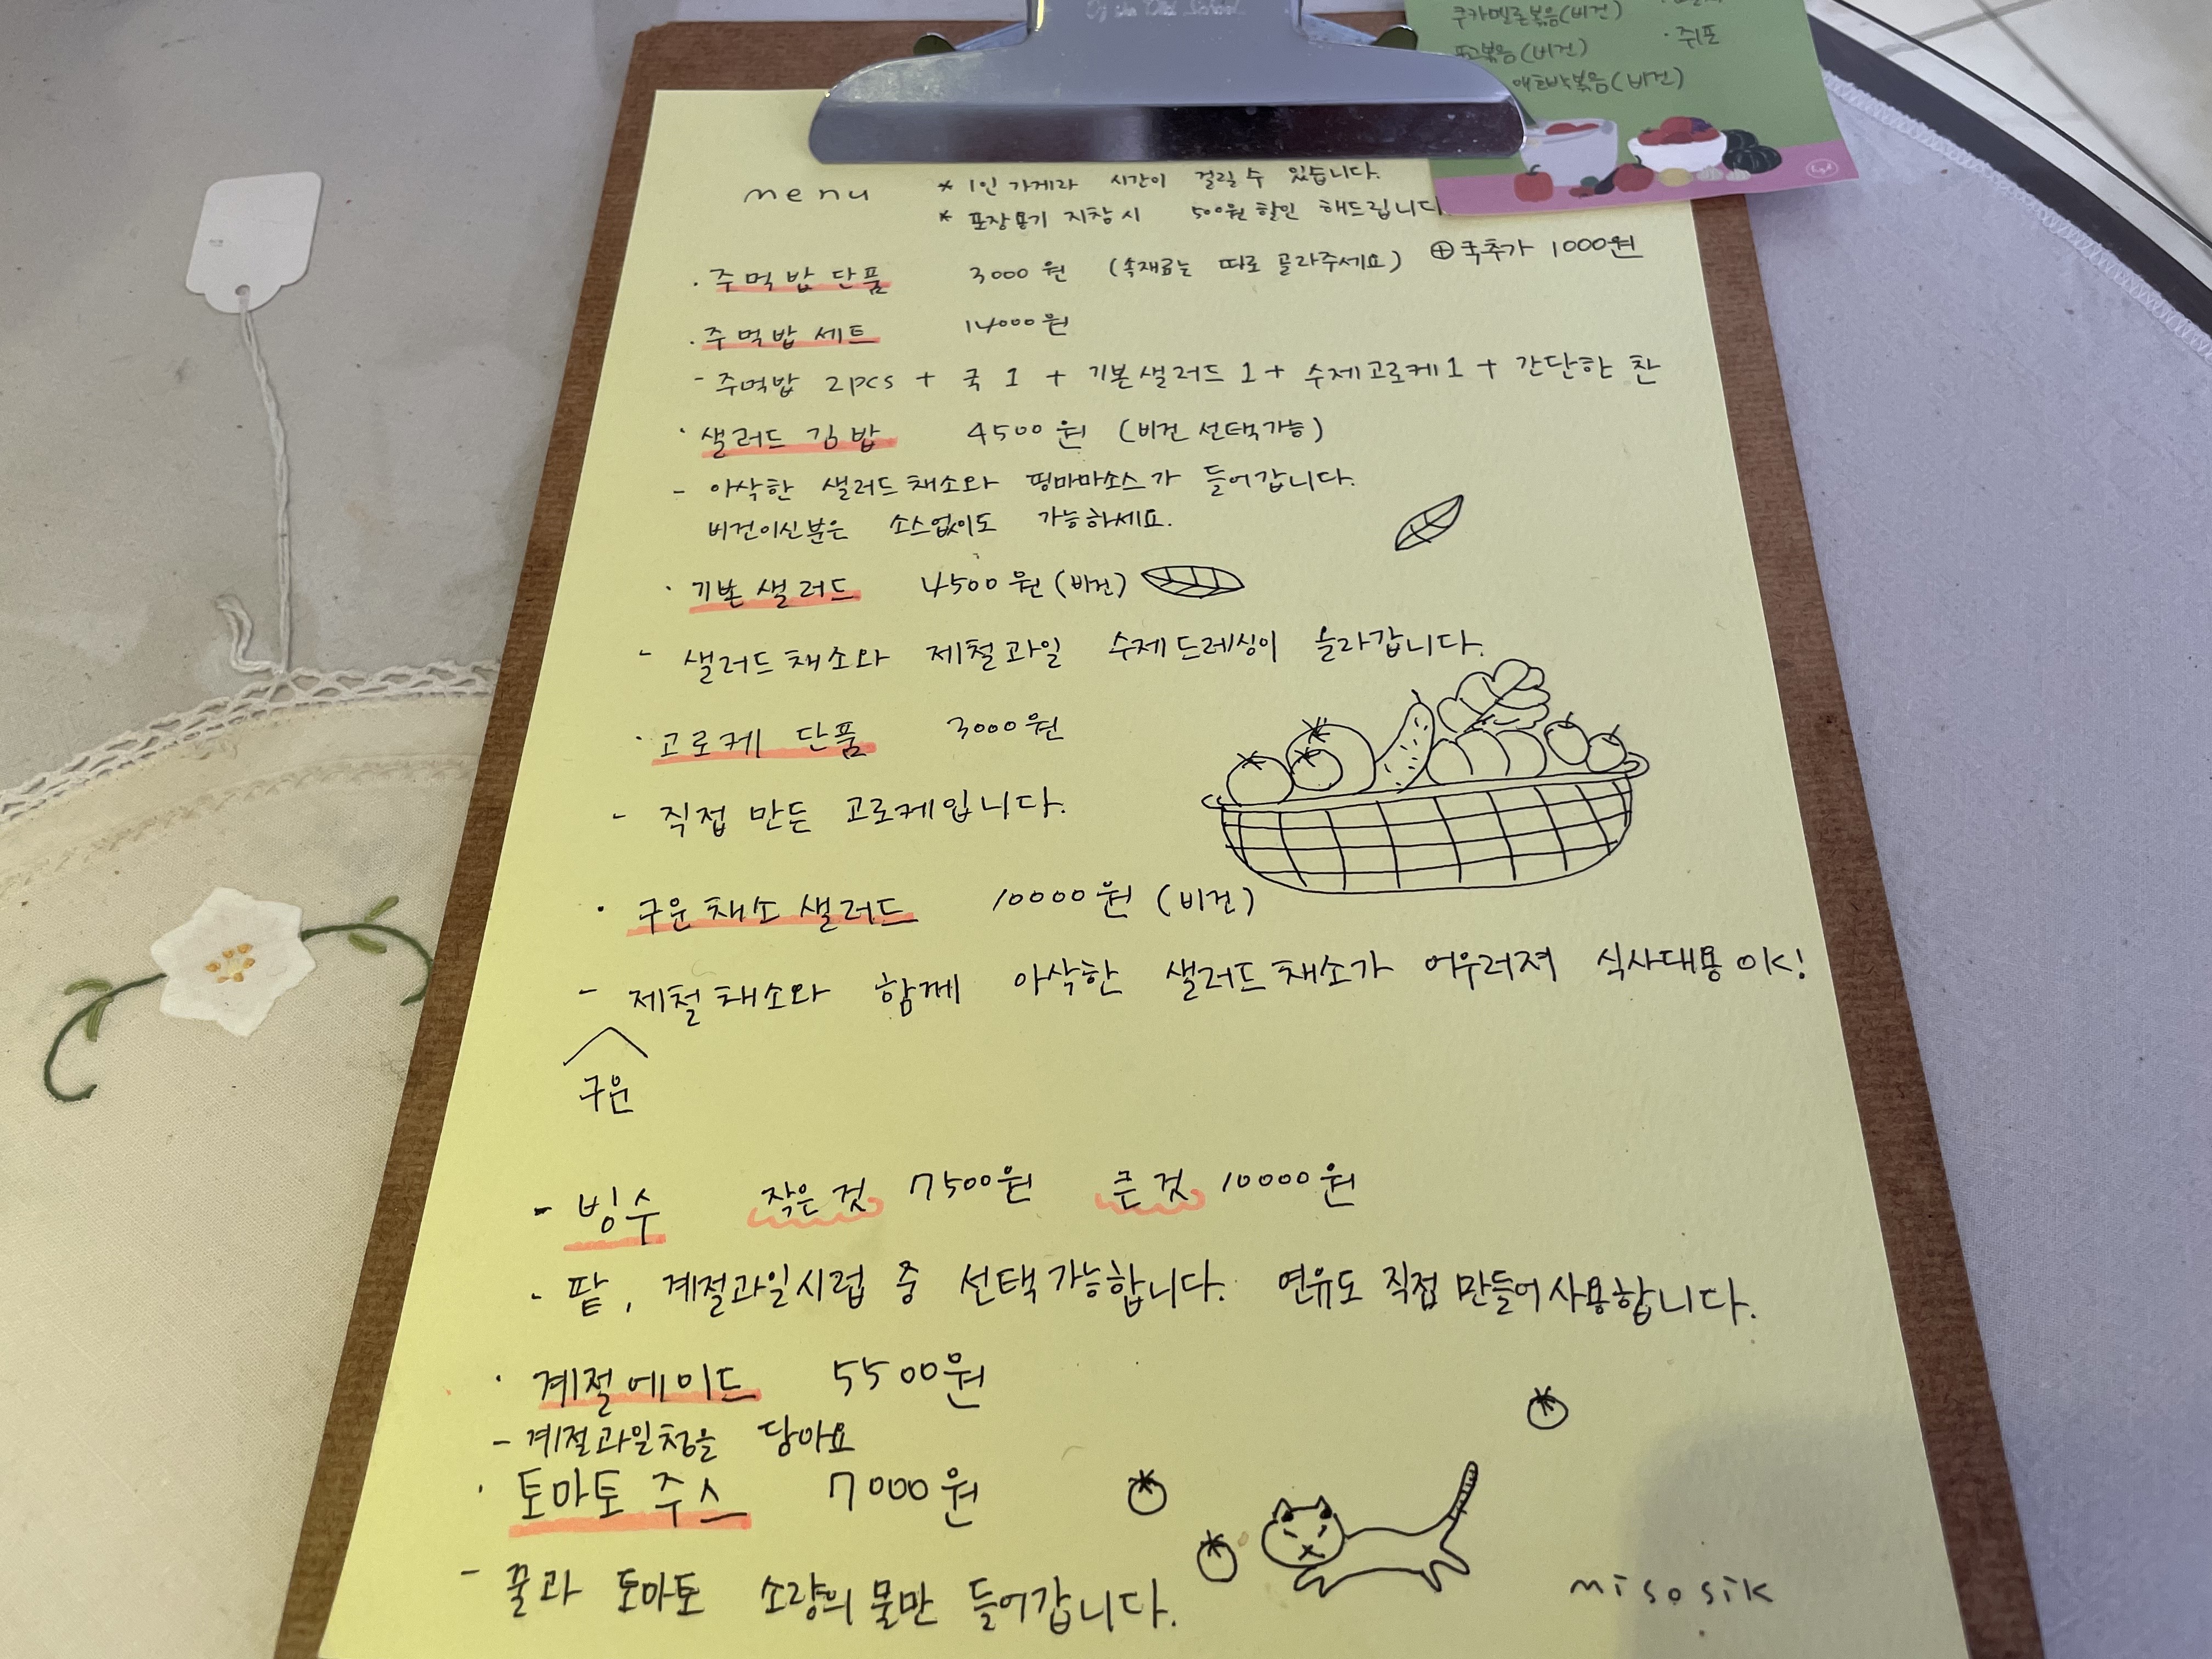 쿠카멜론볶음(비건)
볶음(비건)
· 쥐포
애호박볶음(비건)
menu
* 1인 가게라 시간이 걸릴 수 있습니다.
* 포장용기 지참시 500원 할인 해드립니다
· 주먹밥 단품 3000원 (속재료는 따로 골라주세요) ⊕국추가 1000원
· 주먹밥 세트 14000원
- 주먹밥 2pcs + 국 1 + 기본샐러드 1 + 수제고로케1 + 간단한 찬
· 샐러드 김밥 4500원 (비건 선택가능)
- 아삭한 샐러드채소와 핑마마소스가 들어갑니다.
비건이신분은 소스없이도 가능하세요.
· 기본 샐러드 4500원 (비건)
- 샐러드채소와 제철과일 수제드레싱이 올라갑니다.
· 고로케 단품 3000원
- 직접 만든 고로케입니다.
· 구운채소 샐러드 10000원 (비건)
- 제철채소와 함께 아삭한 샐러드채소가 어우러져 식사대용 OK!
구운
- 빙수 작은것 7500원 큰것 10000원
- 팥, 계절과일시럽 중 선택가능합니다. 연유도 직접 만들어사용합니다.
· 계절에이드 5500원
- 계절과일청을 담아요
· 토마토 주스 7000원
- 꿀과 토마토 소량의 물만 들어갑니다.
misosik